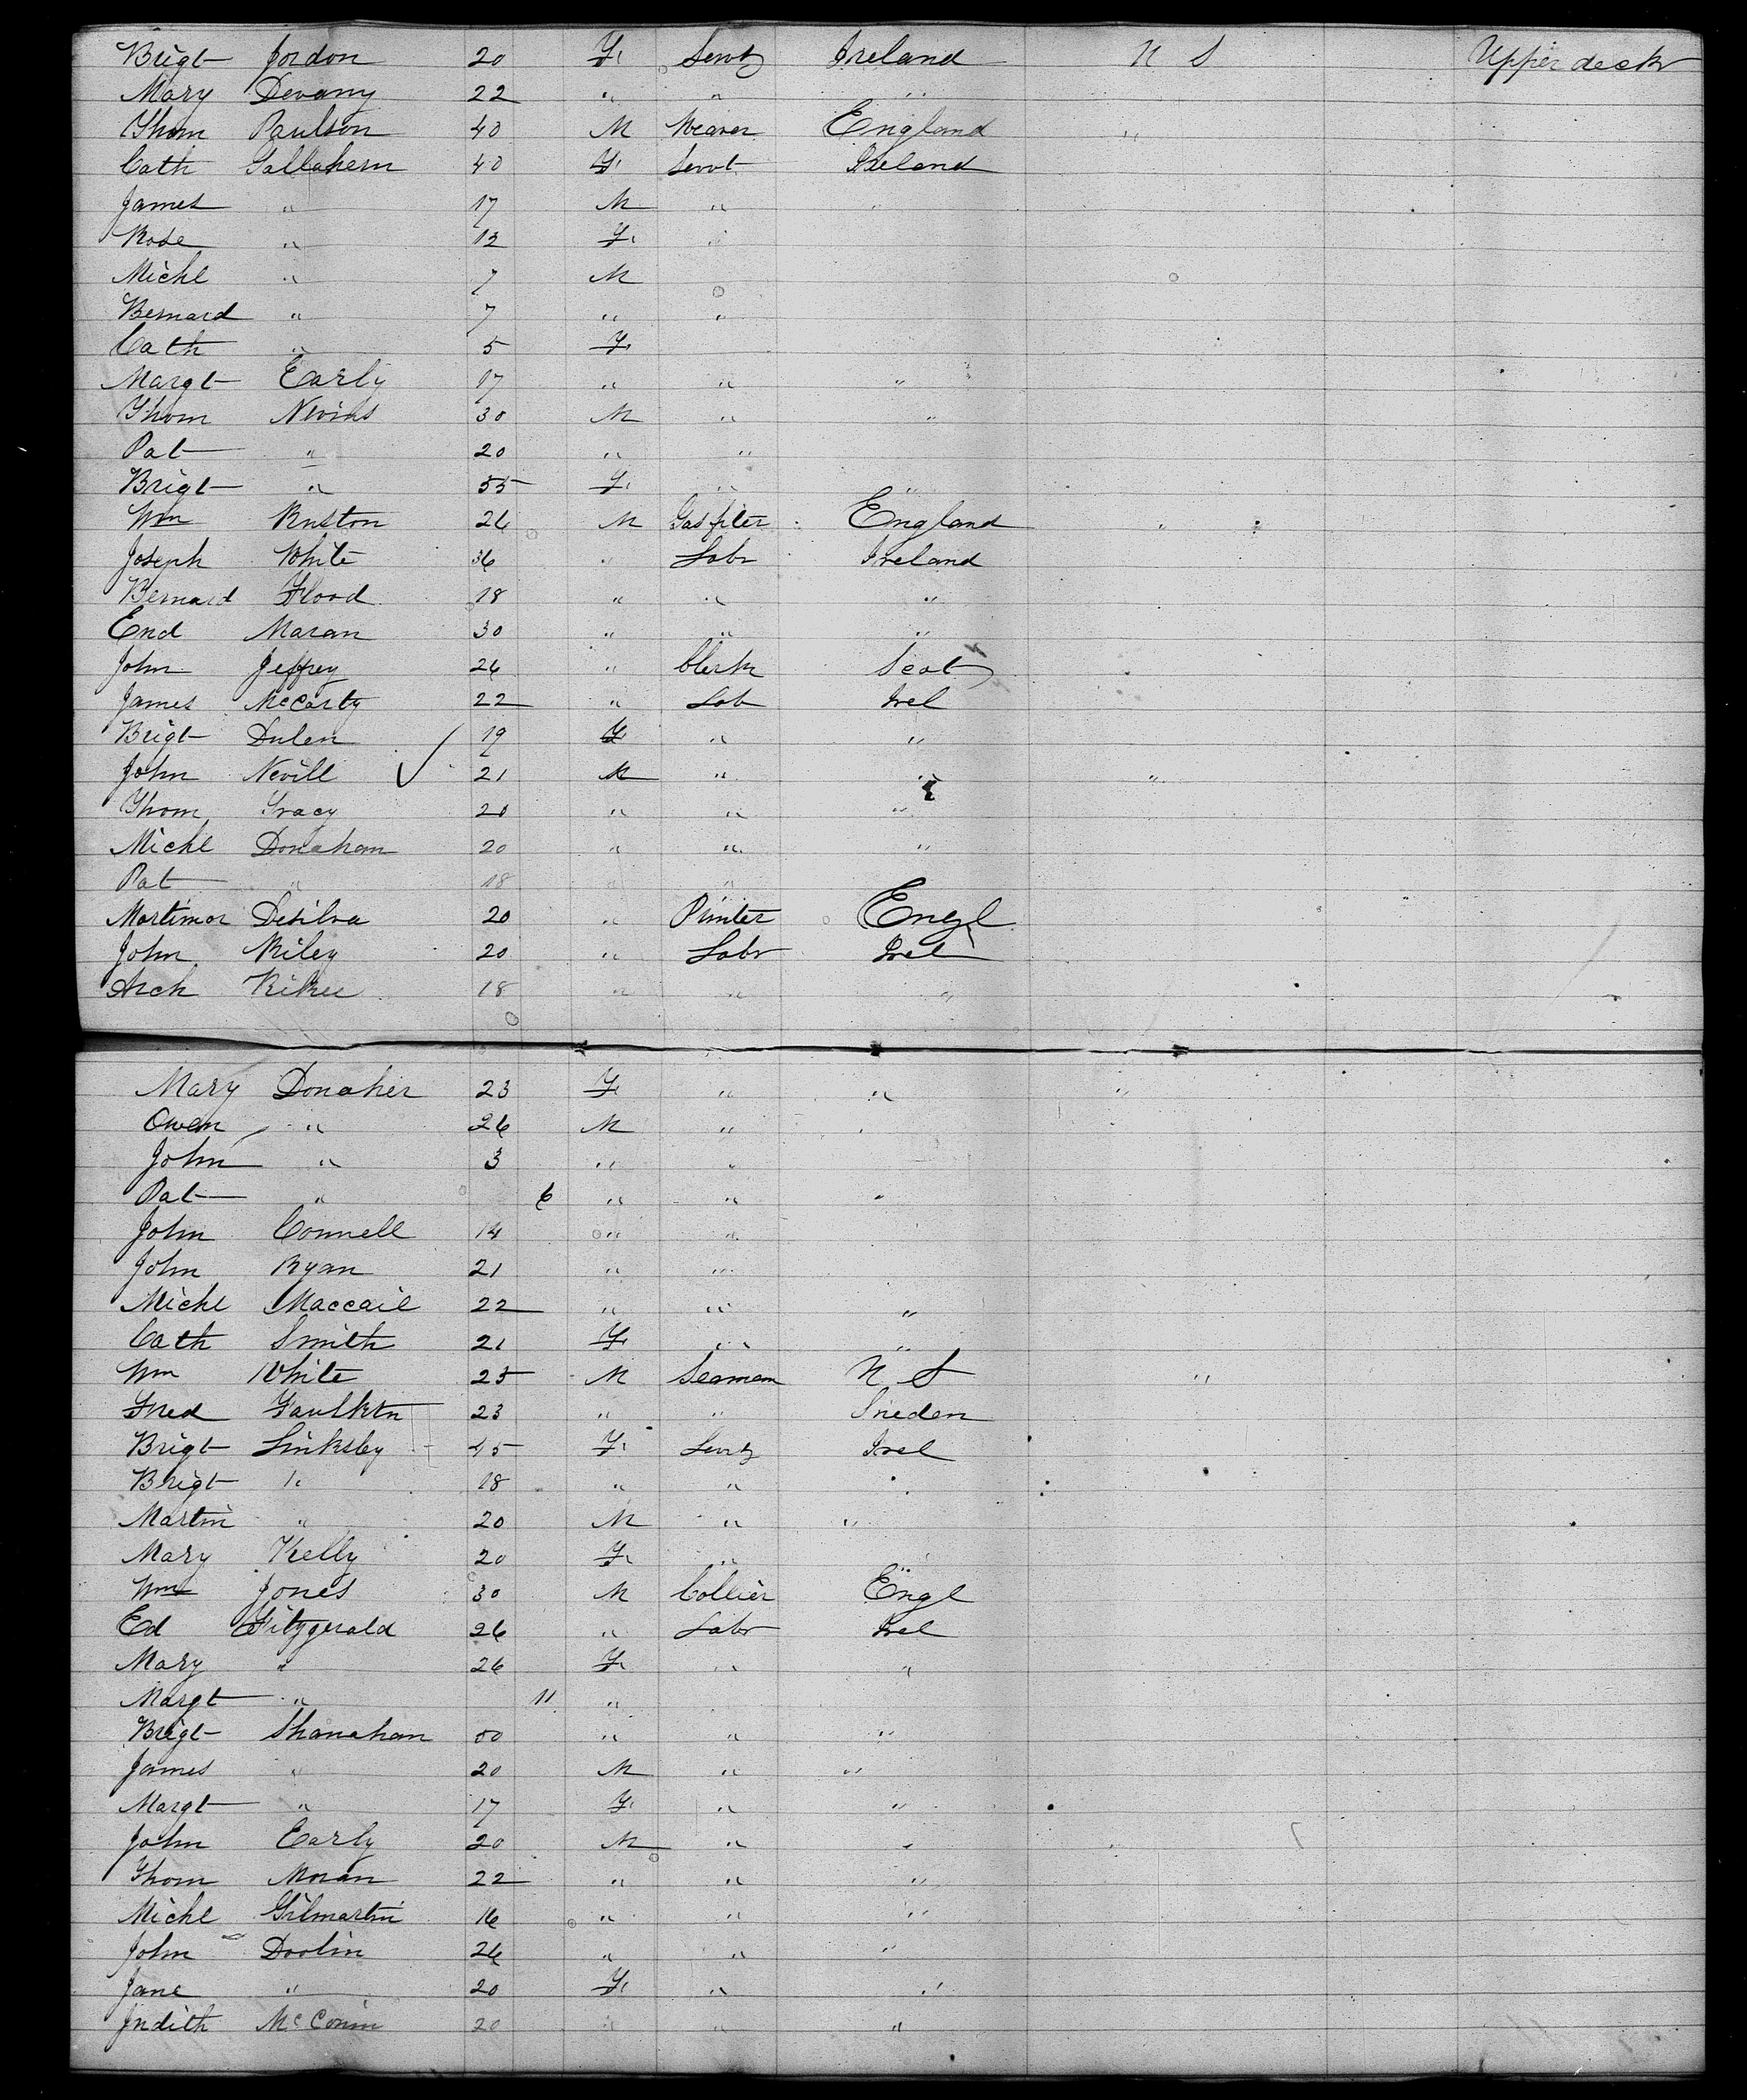 Brigt Jordon 20 F. Servt Ireland U S Upper deck
Mary Devany 22 " " "
Thom Paulson 40 M Weaver England "
Cath Gallahern 40 F. Servt Ireland
James " 17 M " "
Rose " 12 F. "
Michl " 7 M
Bernard " 7 " "
Cath " 5 F.
Margt Early 17 " " "
Thom Nevins 30 M " "
Pat " 20 " "
Brigt " 55 F. " "
Wm Ruston 26 M Gasfiter England "
Joseph White 36 " Labr Ireland
Bernard Flood 18 " " "
End Maran 30 " " "
John Jeffrey 26 " Clerk Scot
James McCarty 22 " Lab Irel
Brigt Dulen 19 F " "
John Nevill ✓ 21 M " " "
Thom Tracy 20 " " "
Michl Donaham 20 " " "
Pat " 18 " "
Mortimor Desilva 20 " Printer Engl
John Riley 20 " Labr Irel
Arch 18 " " "
Mary Donaher 23 F. " " "
Owen " 26 M "
John " 3 " "
Pat " 6 " " "
John Connell 14 " "
John Ryan 21 " "
Michl Maccail 22 " " "
Cath Smith 21 F. " "
Wm White 25 M Seaman U S "
Fred 23 " " Sweden
Brigt Linksley 45 F. Servt Irel
Brigt " 18 " "
Martin " 20 M " "
Mary Kelly 20 F. " "
Wm Jones 30 M Collier Engl
Ed Fitzgerald 26 " Labr Irel
Mary " 26 F. " "
Margt " 11 "
Brigt Shanahan 50 " " "
James " 20 M " "
Margt " 17 F. " "
John Early 20 M " " "
Thom Moran 22 " " "
Michl Gilmartin 16 " " "
John Doolin 26 " " "
Jane " 20 F. " "
Judith 20 " " "